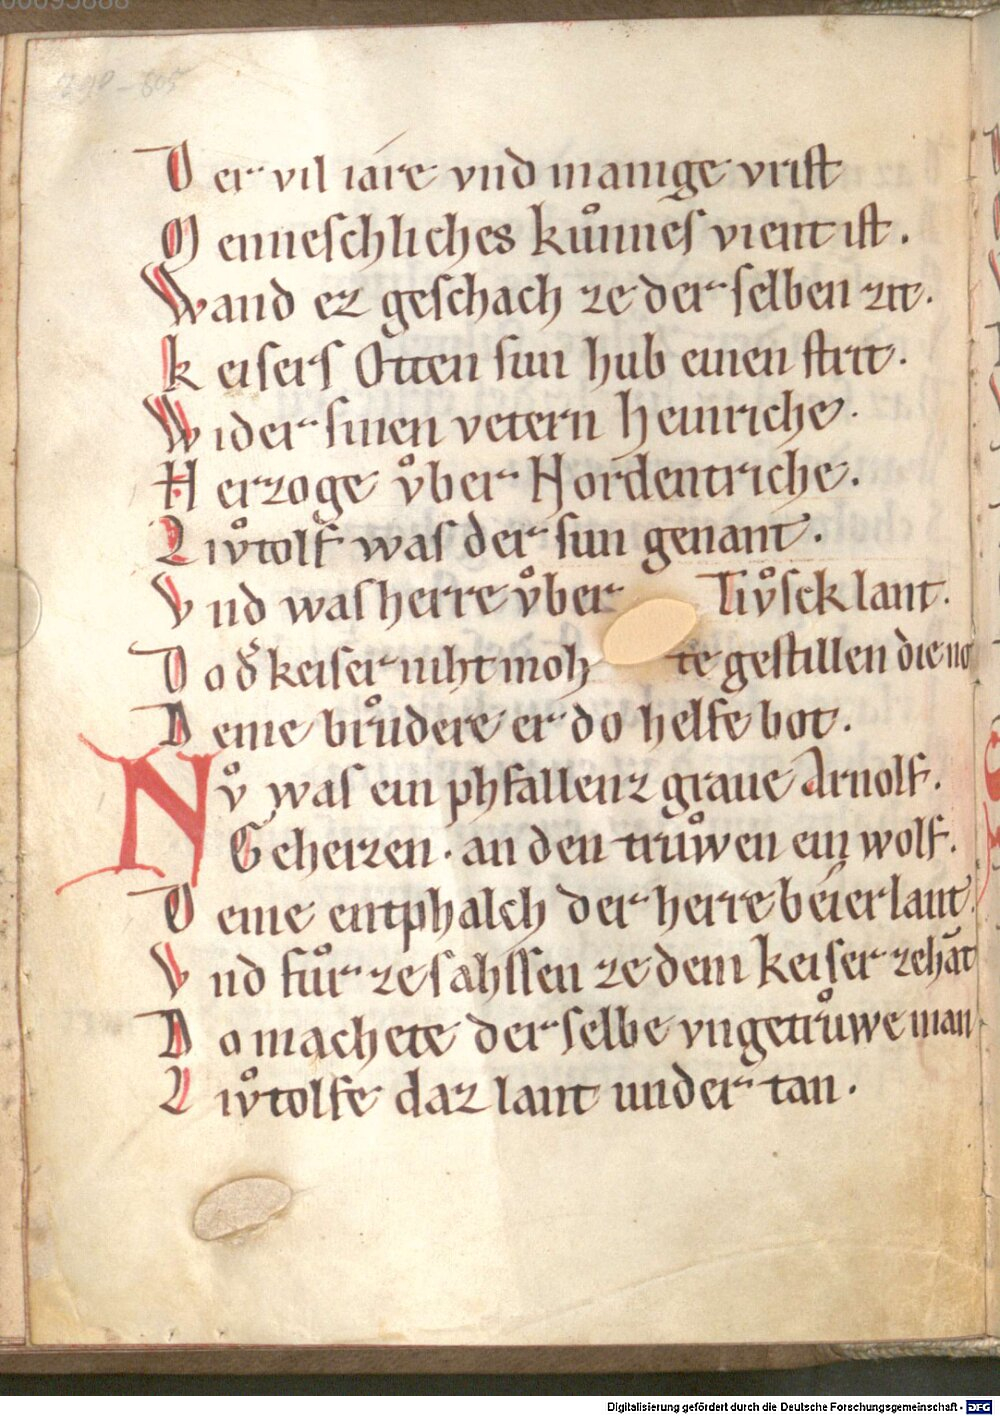 Der vil iare vnd manige vrist
Menneschliches kuͦnnes vient ist.
Wand ez geschach ze der selben zit.
keisers Otten sun hub einen strit.
Wider sinen vetern heinriche.
Herzoge vͦber Nordentriche.
Livͦtolf was der sun genant.
Vnd was herre vͦber Tivͦscklant.
Do dͣ keiser niht mohte gestillen die no
Deme bruͦdere er do helfe bot.
Nvͦ was ein phfallenz graue Arnolf.
Geherzen. an den truͦwen ein wolf.
Deme entphalch der herre beierlant.
Vnd fuͦr ze sahssen ze dem keiser zehāt
Do machete der selbe vngetruͦwe man
Livͦtolfe daz lant under tan.
Digitalisierung gefördert durch die Deutsche Forschungsgemeinschaft - DFG